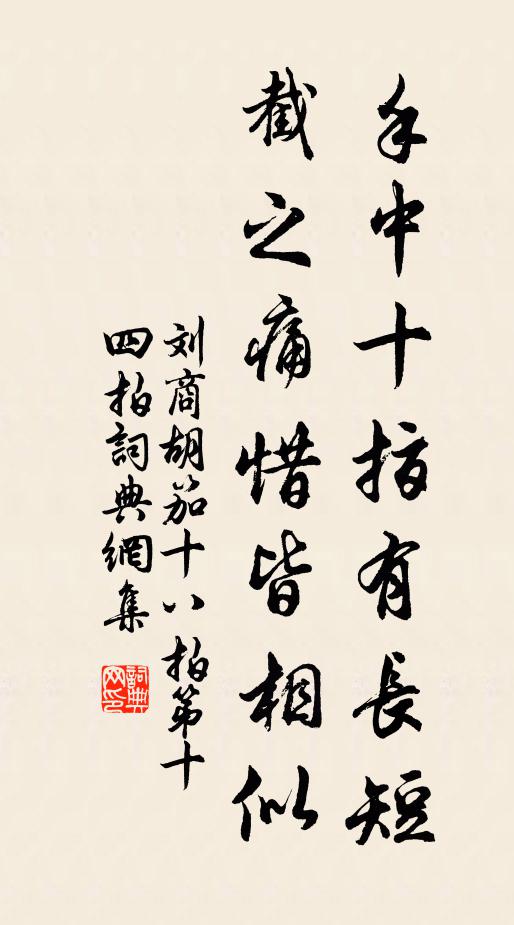 手中十指有長短
截之痛惜皆相似
刘商胡笳十八拍第十
四拍詞典網集
詞典
网印